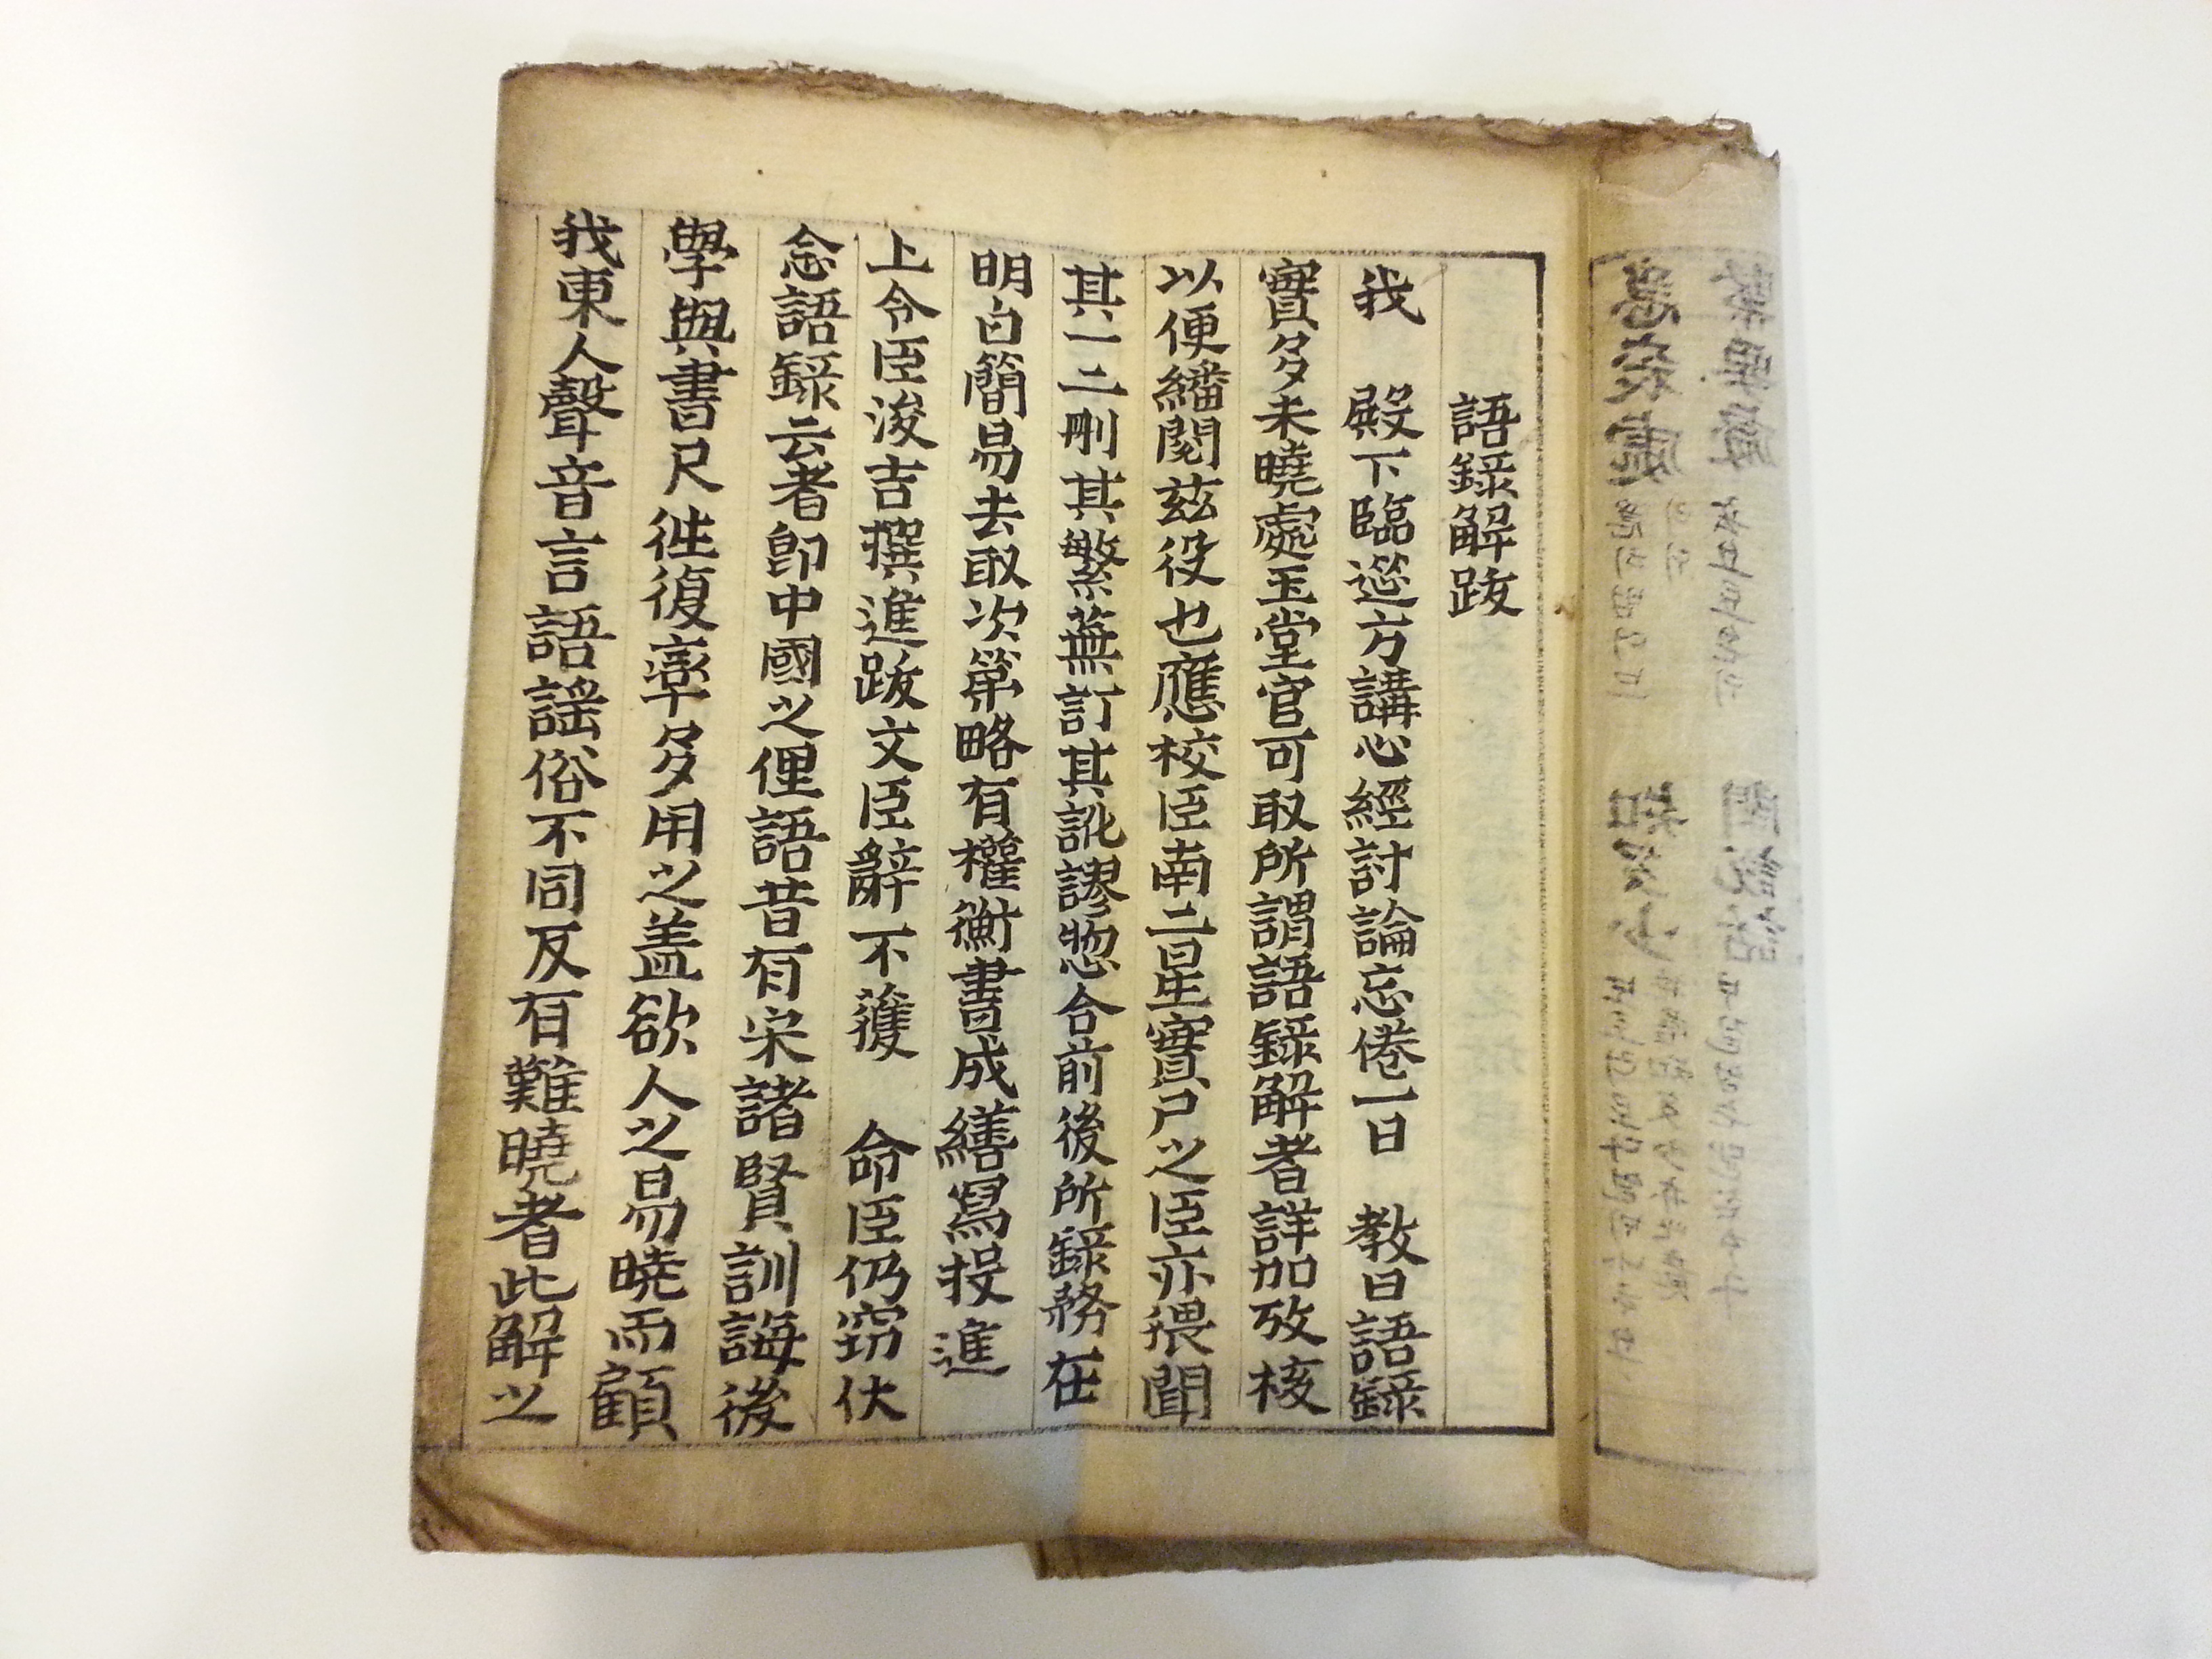 語錄解跋
我 殿下臨筵方講心經討論忘倦一日 敎曰語錄
實多未曉處玉堂官可取所謂語錄解者詳加攷核
以便繙閱玆役也應校臣南二星實尸之臣亦猥聞
其一二刪其繁蕪訂其訛謬惣合前後所錄務在
明白簡易去取次第略有權衡書成繕寫投進
上令臣浚吉撰進跋文臣辭不獲 命臣仍窃伏
念語錄云者卽中國之俚語昔有宋諸賢訓誨後
學與書尺徃復率多用之盖欲人之易曉而顧
我東人聲音言語謠俗不同反有難曉者此解之